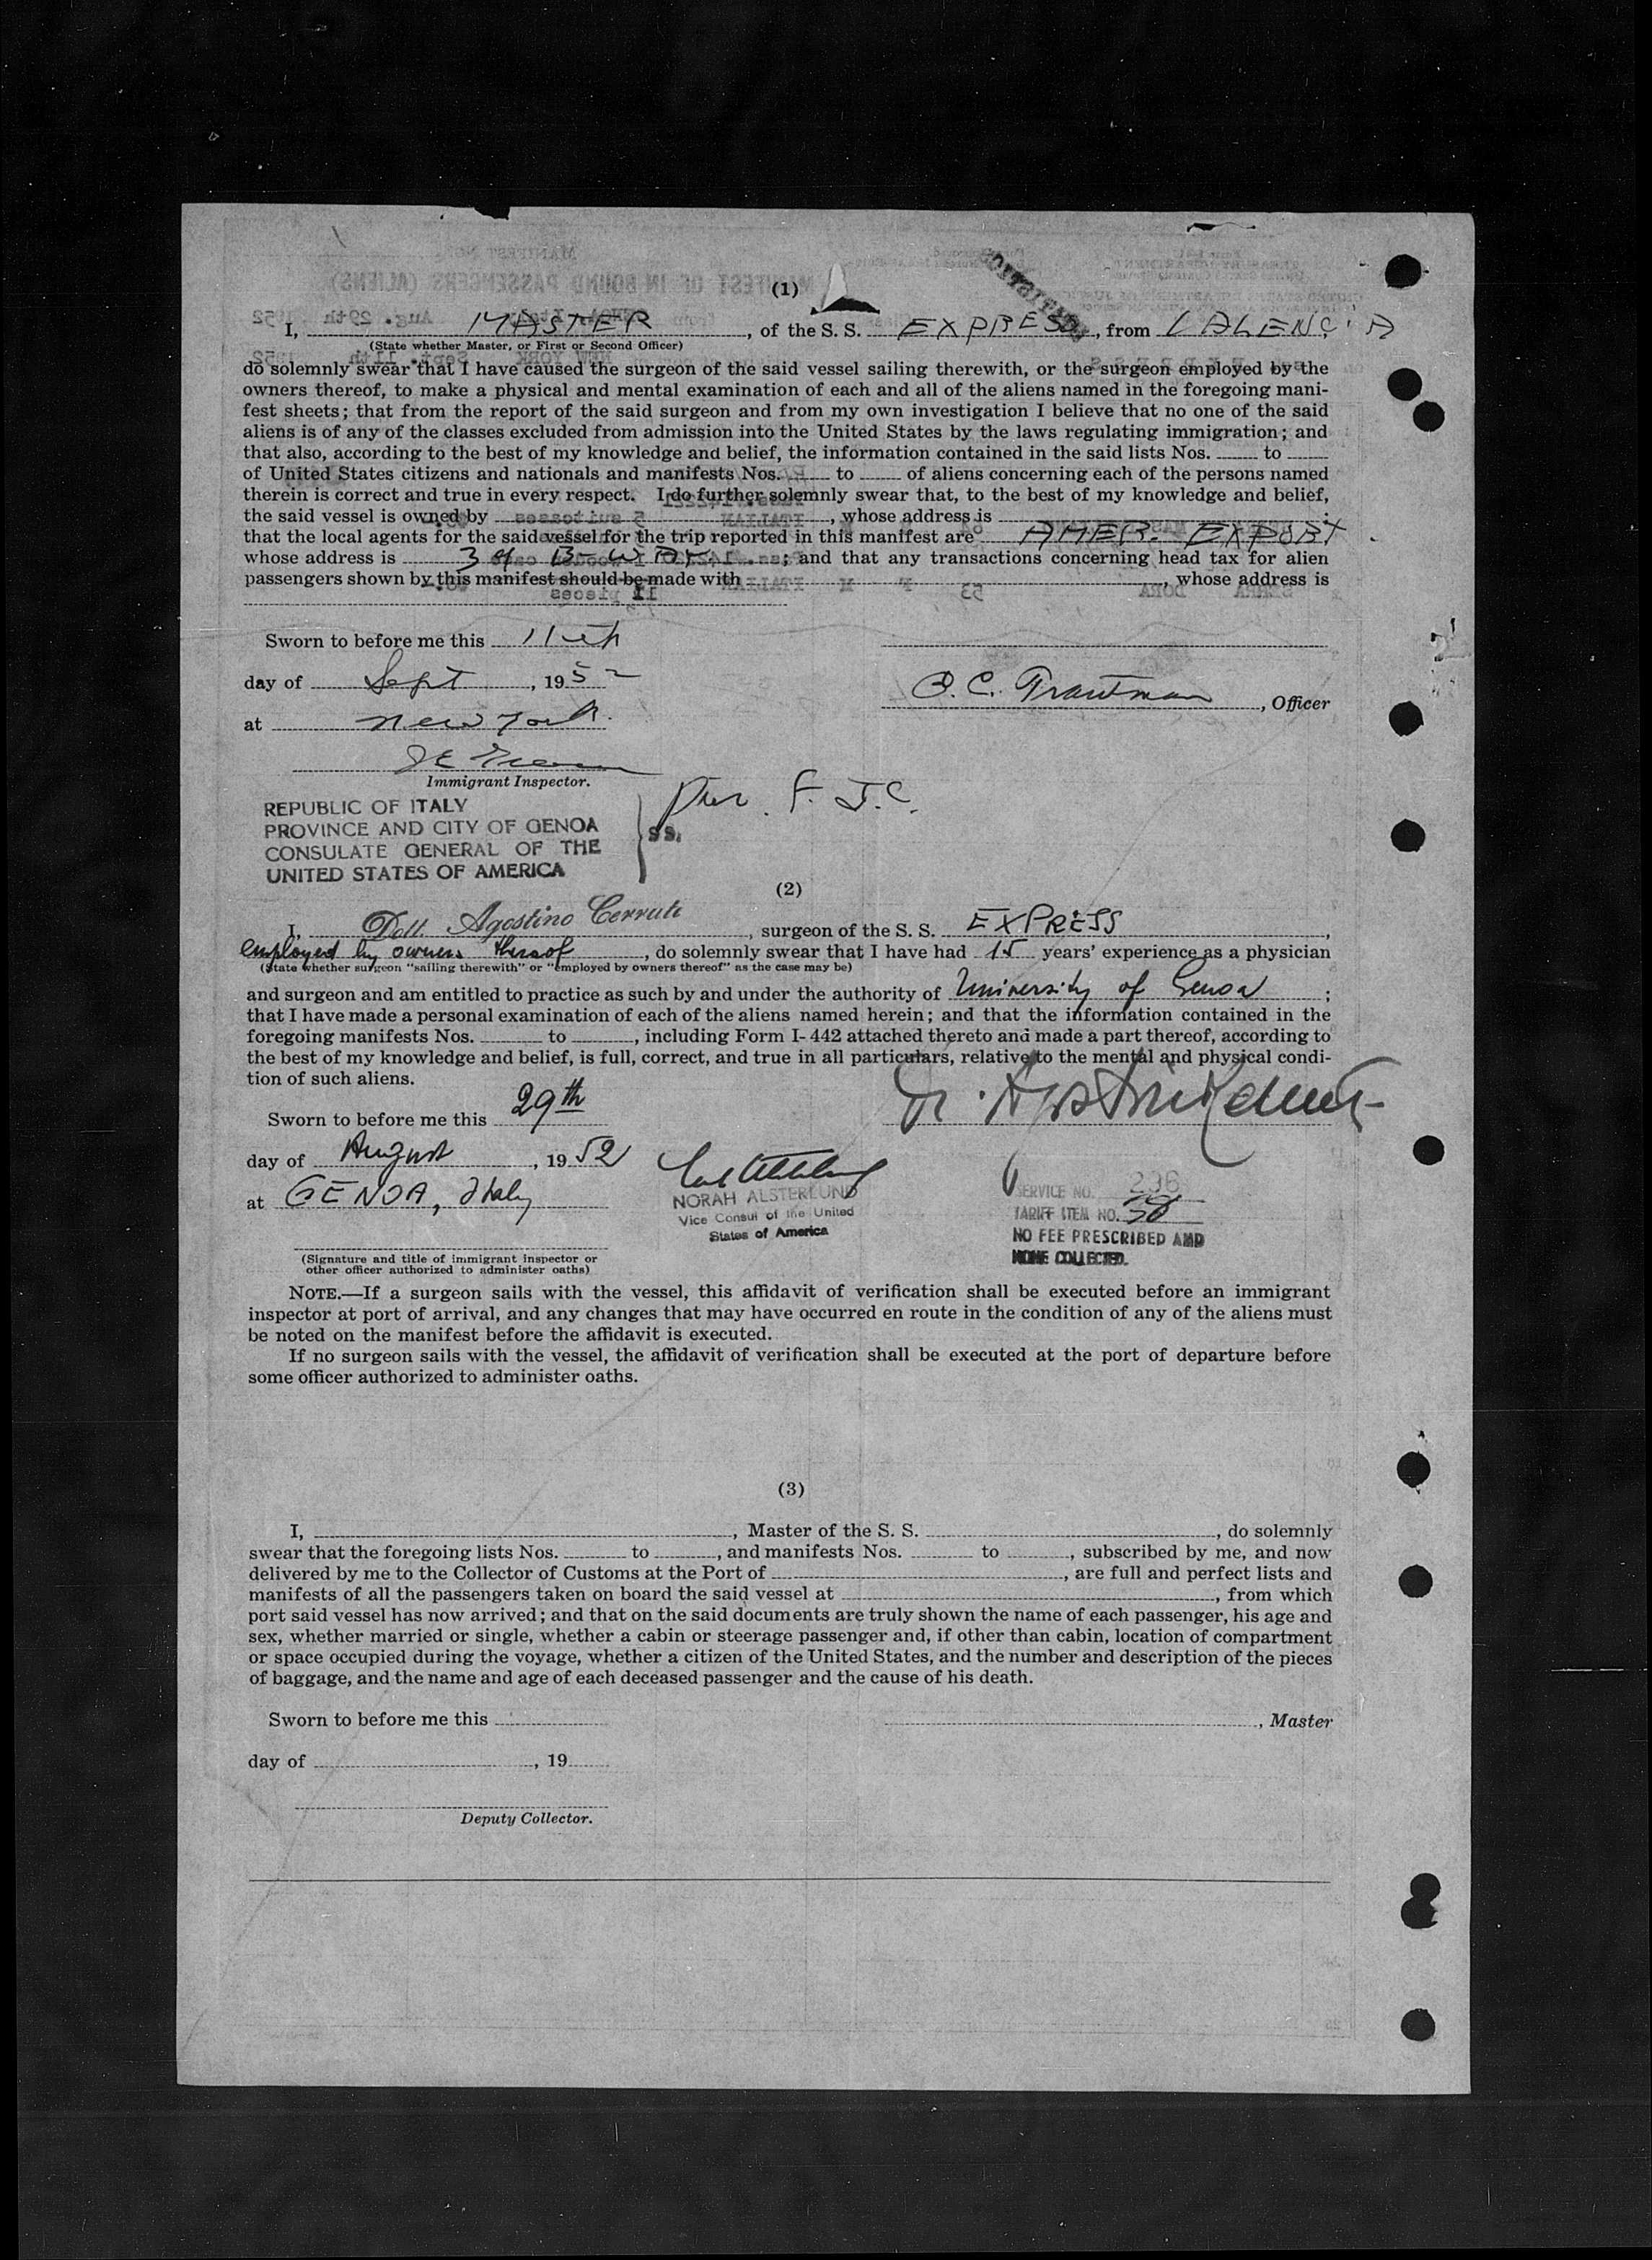 (1)
I, MASTER, of the S. S. EXPRESS, from VALENCIA
(State whether Master, or First or Second Officer)
do solemnly swear that I have caused the surgeon of the said vessel sailing therewith, or the surgeon employed by the
owners thereof, to make a physical and mental examination of each and all of the aliens named in the foregoing mani-
fest sheets; that from the report of the said surgeon and from my own investigation I believe that no one of the said
aliens is of any of the classes excluded from admission into the United States by the laws regulating immigration; and
that also, according to the best of my knowledge and belief, the information contained in the said lists Nos. ____ to ____
of United States citizens and nationals and manifests Nos. ____ to ____ of aliens concerning each of the persons named
therein is correct and true in every respect. I do further solemnly swear that, to the best of my knowledge and belief,
the said vessel is owned by ____, whose address is ____;
that the local agents for the said vessel for the trip reported in this manifest are AMER. EXPORT
whose address is 39 B-WAY.; and that any transactions concerning head tax for alien
passengers shown by this manifest should be made with ____, whose address is
Sworn to before me this 11th
day of Sept, 1952
P. C. Trautman, Officer
at New York.
Immigrant Inspector.
REPUBLIC OF ITALY
PROVINCE AND CITY OF GENOA
CONSULATE GENERAL OF THE
UNITED STATES OF AMERICA
SS.
F. J.C.
(2)
I, Dott. Agostino Cerruti, surgeon of the S. S. EXPRESS,
employed by owners thereof, do solemnly swear that I have had 15 years' experience as a physician
(State whether surgeon "sailing therewith" or "employed by owners thereof" as the case may be)
and surgeon and am entitled to practice as such by and under the authority of University of Genoa;
that I have made a personal examination of each of the aliens named herein; and that the information contained in the
foregoing manifests Nos. ____ to ____, including Form I-442 attached thereto and made a part thereof, according to
the best of my knowledge and belief, is full, correct, and true in all particulars, relative to the mental and physical condi-
tion of such aliens.
Sworn to before me this 29th
day of August, 1952
at GENOA, Italy
NORAH ALSTERLUND
Vice Consul of the United
States of America
SERVICE NO. 296
TARIFF ITEM NO. 38
NO FEE PRESCRIBED AND
NONE COLLECTED.
(Signature and title of immigrant inspector or
other officer authorized to administer oaths)
NOTE.—If a surgeon sails with the vessel, this affidavit of verification shall be executed before an immigrant
inspector at port of arrival, and any changes that may have occurred en route in the condition of any of the aliens must
be noted on the manifest before the affidavit is executed.
If no surgeon sails with the vessel, the affidavit of verification shall be executed at the port of departure before
some officer authorized to administer oaths.
(3)
I, ____, Master of the S. S. ____, do solemnly
swear that the foregoing lists Nos. ____ to ____, and manifests Nos. ____ to ____, subscribed by me, and now
delivered by me to the Collector of Customs at the Port of ____, are full and perfect lists and
manifests of all the passengers taken on board the said vessel at ____, from which
port said vessel has now arrived; and that on the said documents are truly shown the name of each passenger, his age and
sex, whether married or single, whether a cabin or steerage passenger and, if other than cabin, location of compartment
or space occupied during the voyage, whether a citizen of the United States, and the number and description of the pieces
of baggage, and the name and age of each deceased passenger and the cause of his death.
Sworn to before me this ____
____, Master
day of ____, 19__
Deputy Collector.